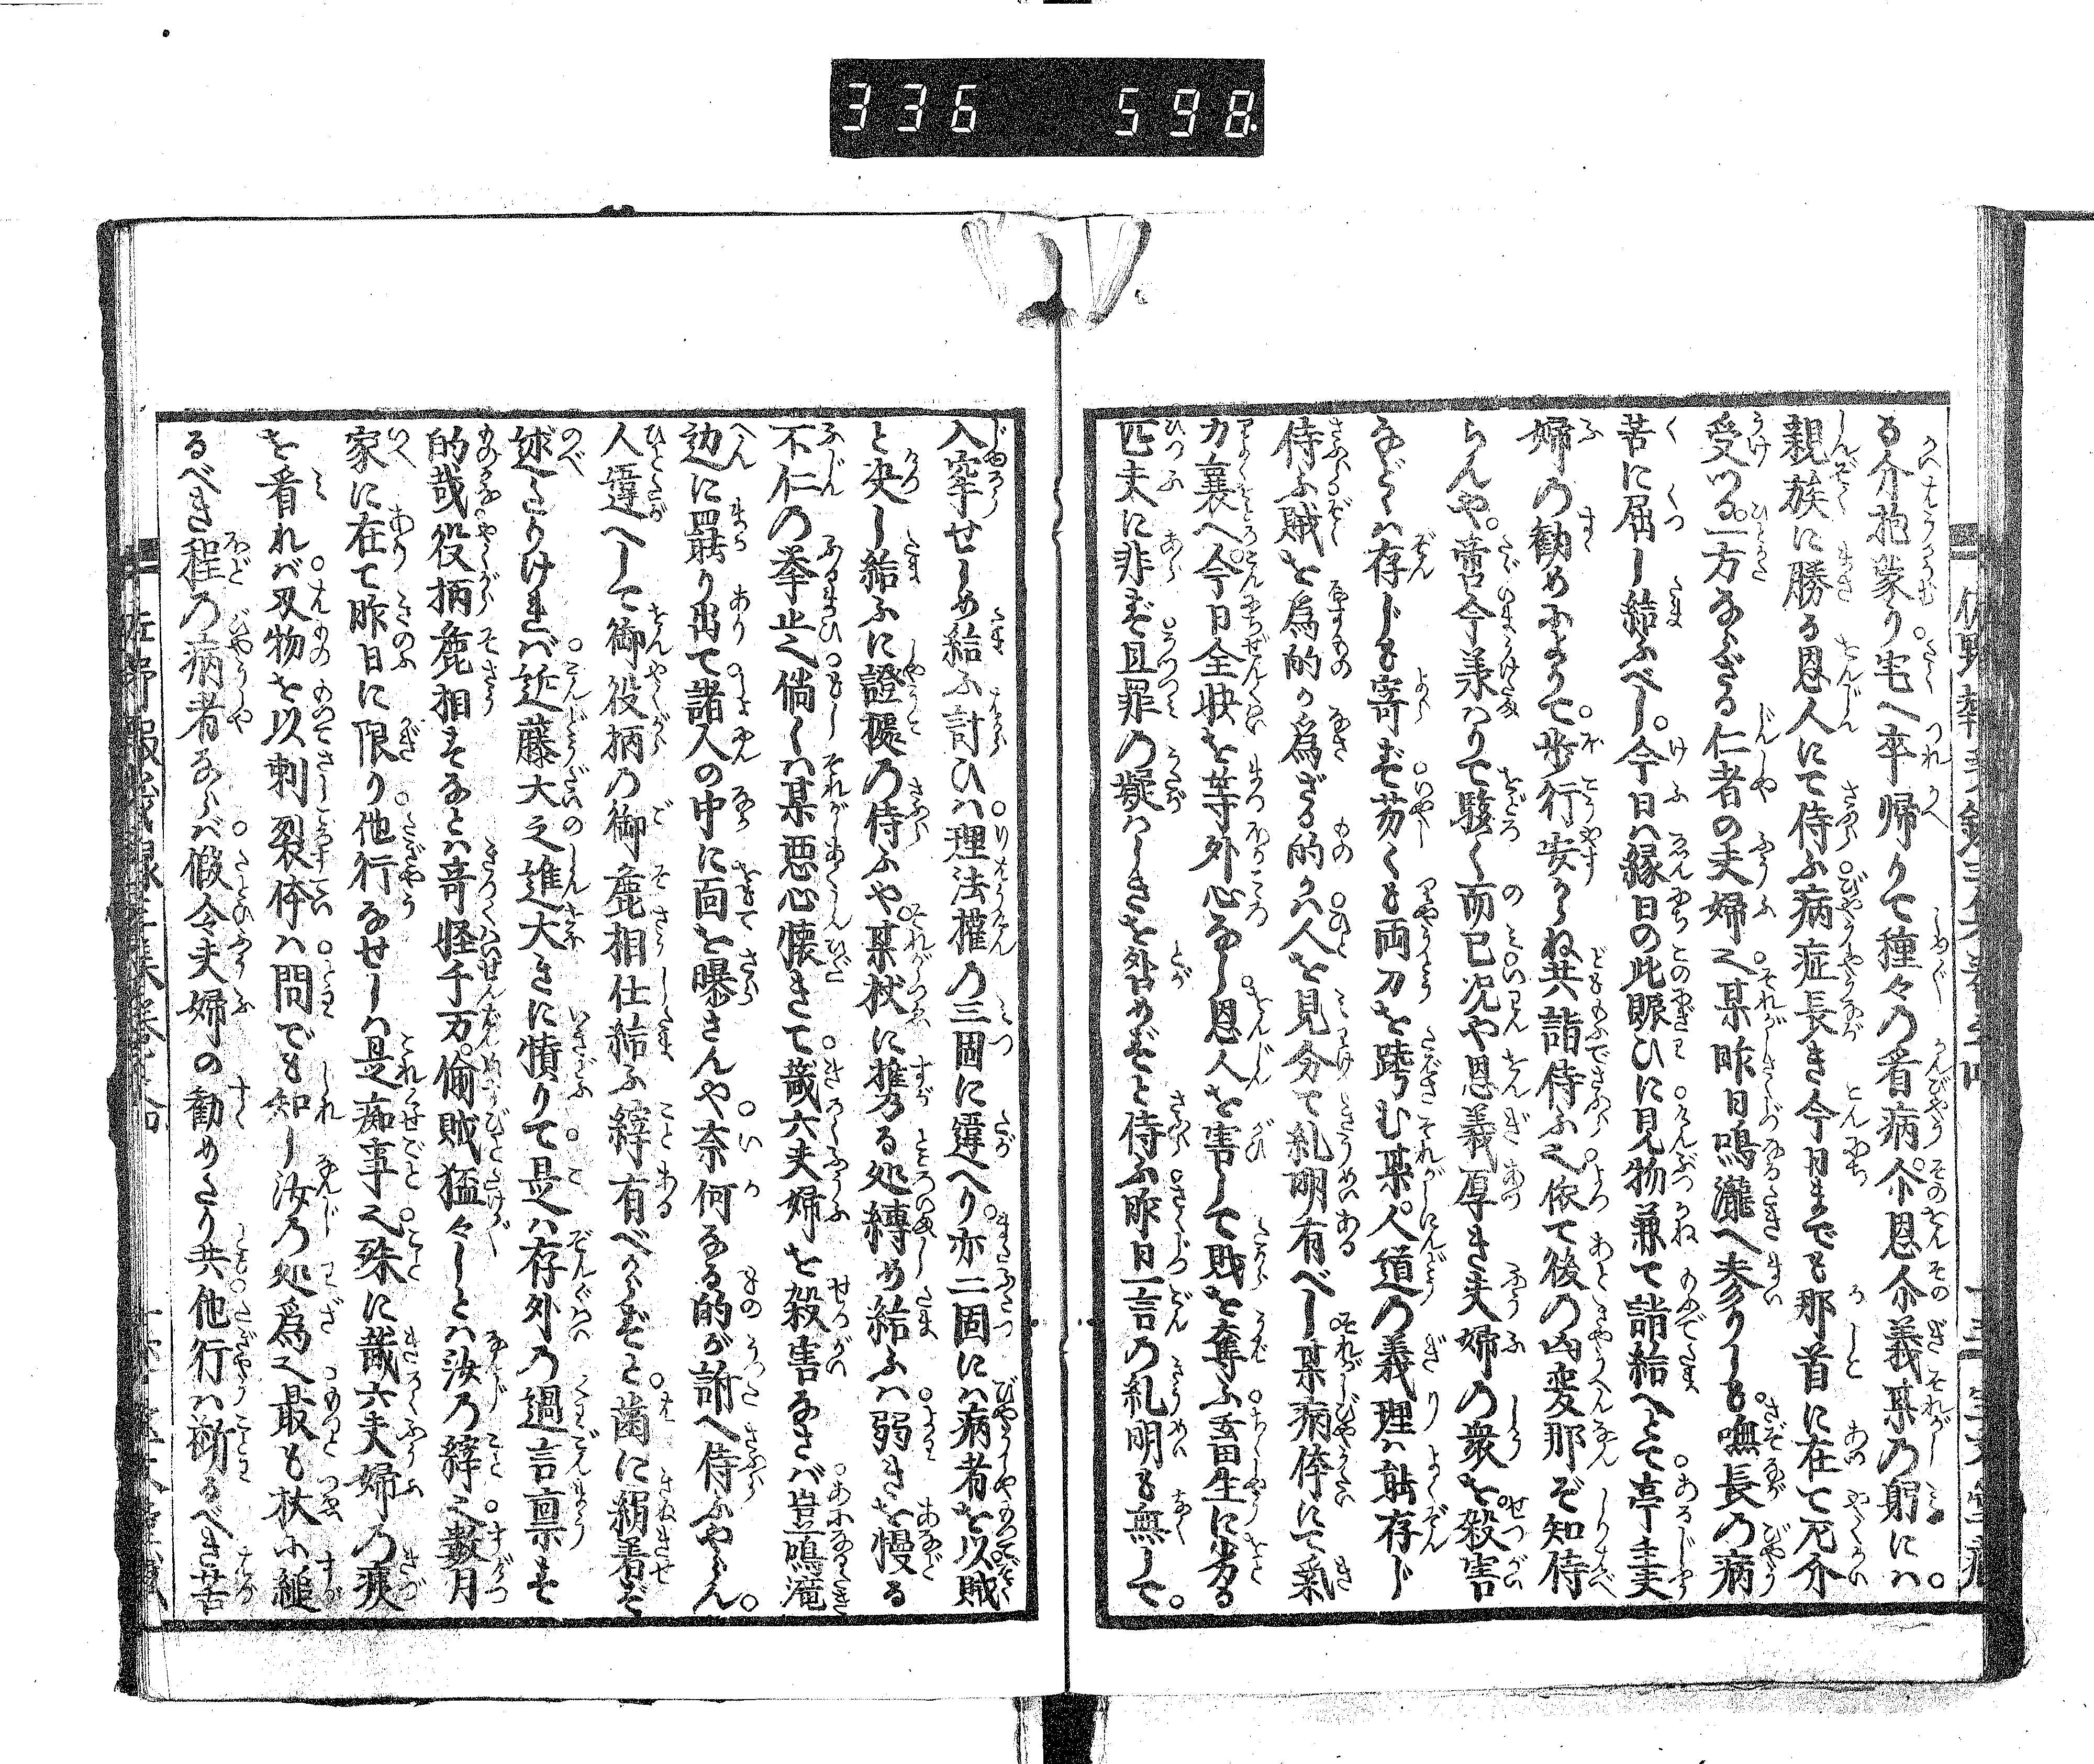 336 598
る介抱蒙り宅へ卒帰りて種々の看病介恩介義某の躬には。
親族に勝る恩人にて侍ふ病症長き今日までも那首に在て厄介
受つる。一方ならざる仁者の夫婦之某昨日鳴瀧へ参りしも嘸長の病
苦に屈し給ふべし。今日は縁日の此賑ひに見物兼て詣給へとて亭主夫
婦の勧めによりて。歩行安からね共詣侍ふ之依て後の凶変那ぞ知侍
らんや。啻今承はりて駭く而已況や恩義厚き夫婦の衆を殺害
などゝは存じも寄ず苟くも両刀を跨む某人道の義理は能存じ
侍ふ賊を為的か為ざる的か人を見分て糺明有べし某病体にて気
力衰へ今日全快を等外心なし恩人を害して財を奪ふ畜生に劣る
匹夫に非ず且罪の疑はしきを咎めずと侍ふ昨日一言の糺明も無して。
入牢せしめ給ふ計ひは理法権の三固に違へり亦二固には病者を以賊
と决し給ふに證拠の侍ふや某杖に携る処縛め給ふは弱きを慢る
不仁の挙止之倘しくは某悪心懐きて哉六夫婦を殺害なさば豈鳴滝
辺に罷り出て諸人の中に面を曝さんや奈何なる的が訴へ侍ふやらん。
人違へして御役柄の御麁相仕給ふ縡有べからずと歯に絹着ず
述たりければ近藤大之進大きに憤りて是は存外の過言稟す
的哉役柄麁相するとは奇怪千万偸賊猛々しとは汝の縡之数月
家に在て昨日に限り他行なせしは是痴事之殊に哉六夫婦の痍
を看れば刃物を以刺裂体は問でも知し汝の処為之最も杖に縋
るべき程の病者ならば假令夫婦の勧めたり共他行は断るべき苦